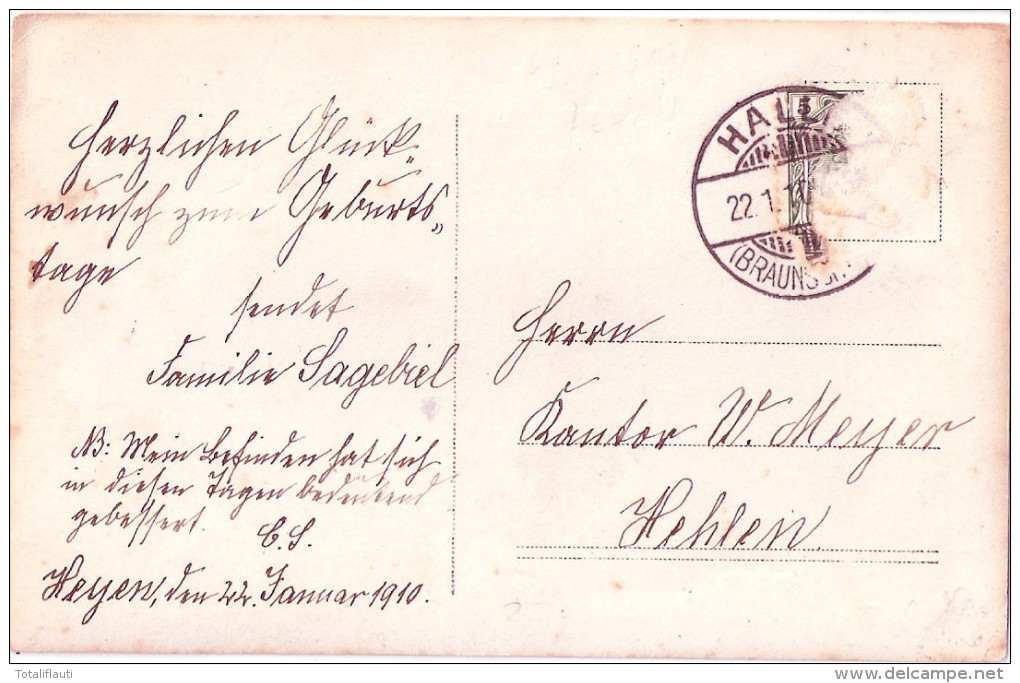 Herzlichen Glück-
wunsch zum Geburts-
tage
sendet
Familie Sagebiel
NB: Mein Befinden hat sich
in diesen Tagen bedeutend
gebessert.
Heyen, den 22. Januar 1910.
5
HALL
22. 1. 10
(BRAUNSCH.
Herrn
Kantor W. Meyer
Hehlen.
Totaliflauti
delcampe.net